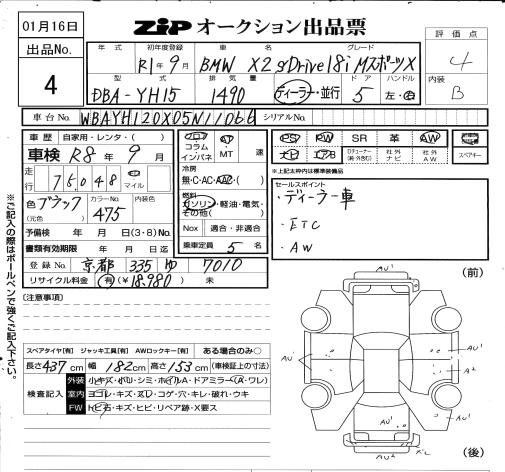 01月16日
ZiP オークション出品票
出品No. 4
年式 初年度登録 車名 グレード
R1年9月 BMW X2 sDrive18i MスポーツX
型式 排気量 ドア ハンドル
DBA-YH15 1490 ディーラー・並行 5 左・右
評価点 4
内装 B
車台No. WBAYH120X05N11066 シリアルNo.
車歴 自家用・レンタ・( )
車検 R8年9月
走行 75,048 km マイル
色 ブラック (元色) カラーNo. 475 内装色
予備検 年 月 日(3・8)No.
書類有効期限 年 月 日迄
登録No. 京都 335 ゆ 7010
リサイクル料金 有(¥18,980) 未
フロア コラム インパネ AT MT 速
冷房 無・C・AC・AAC・( )
燃料 ガソリン・軽油・電気・その他( )
Nox 適合・非適合
乗車定員 5 名
PS PW SR 革 AW
ナビ エアB TVチューナー(純・外含む) 社外ナビ 社外AW スペアキー
※上記太枠内は標準装備品
セールスポイント
・ディーラー車
・ETC
・AW
(注意事項)
※ご記入の際はボールペンで強くご記入下さい。
スペアタイヤ[有] ジャッキ工具[有] AWロックキー[有] ある場合のみ○
長さ 437cm 幅 182cm 高さ 153cm (車検証上の寸法)
検査記入 外装 小キズ・小凹・シミ・ホイルA・ドアミラー(A・ワレ)
室内 ヨゴレ・キズ・スレ・コゲ・穴・キレ・破れ・ウキ
FW トビ石・キズ・ヒビ・リペア跡・X要ス
(前)
AU'
AU'
AU'
A2
AU'
AU'
(後)